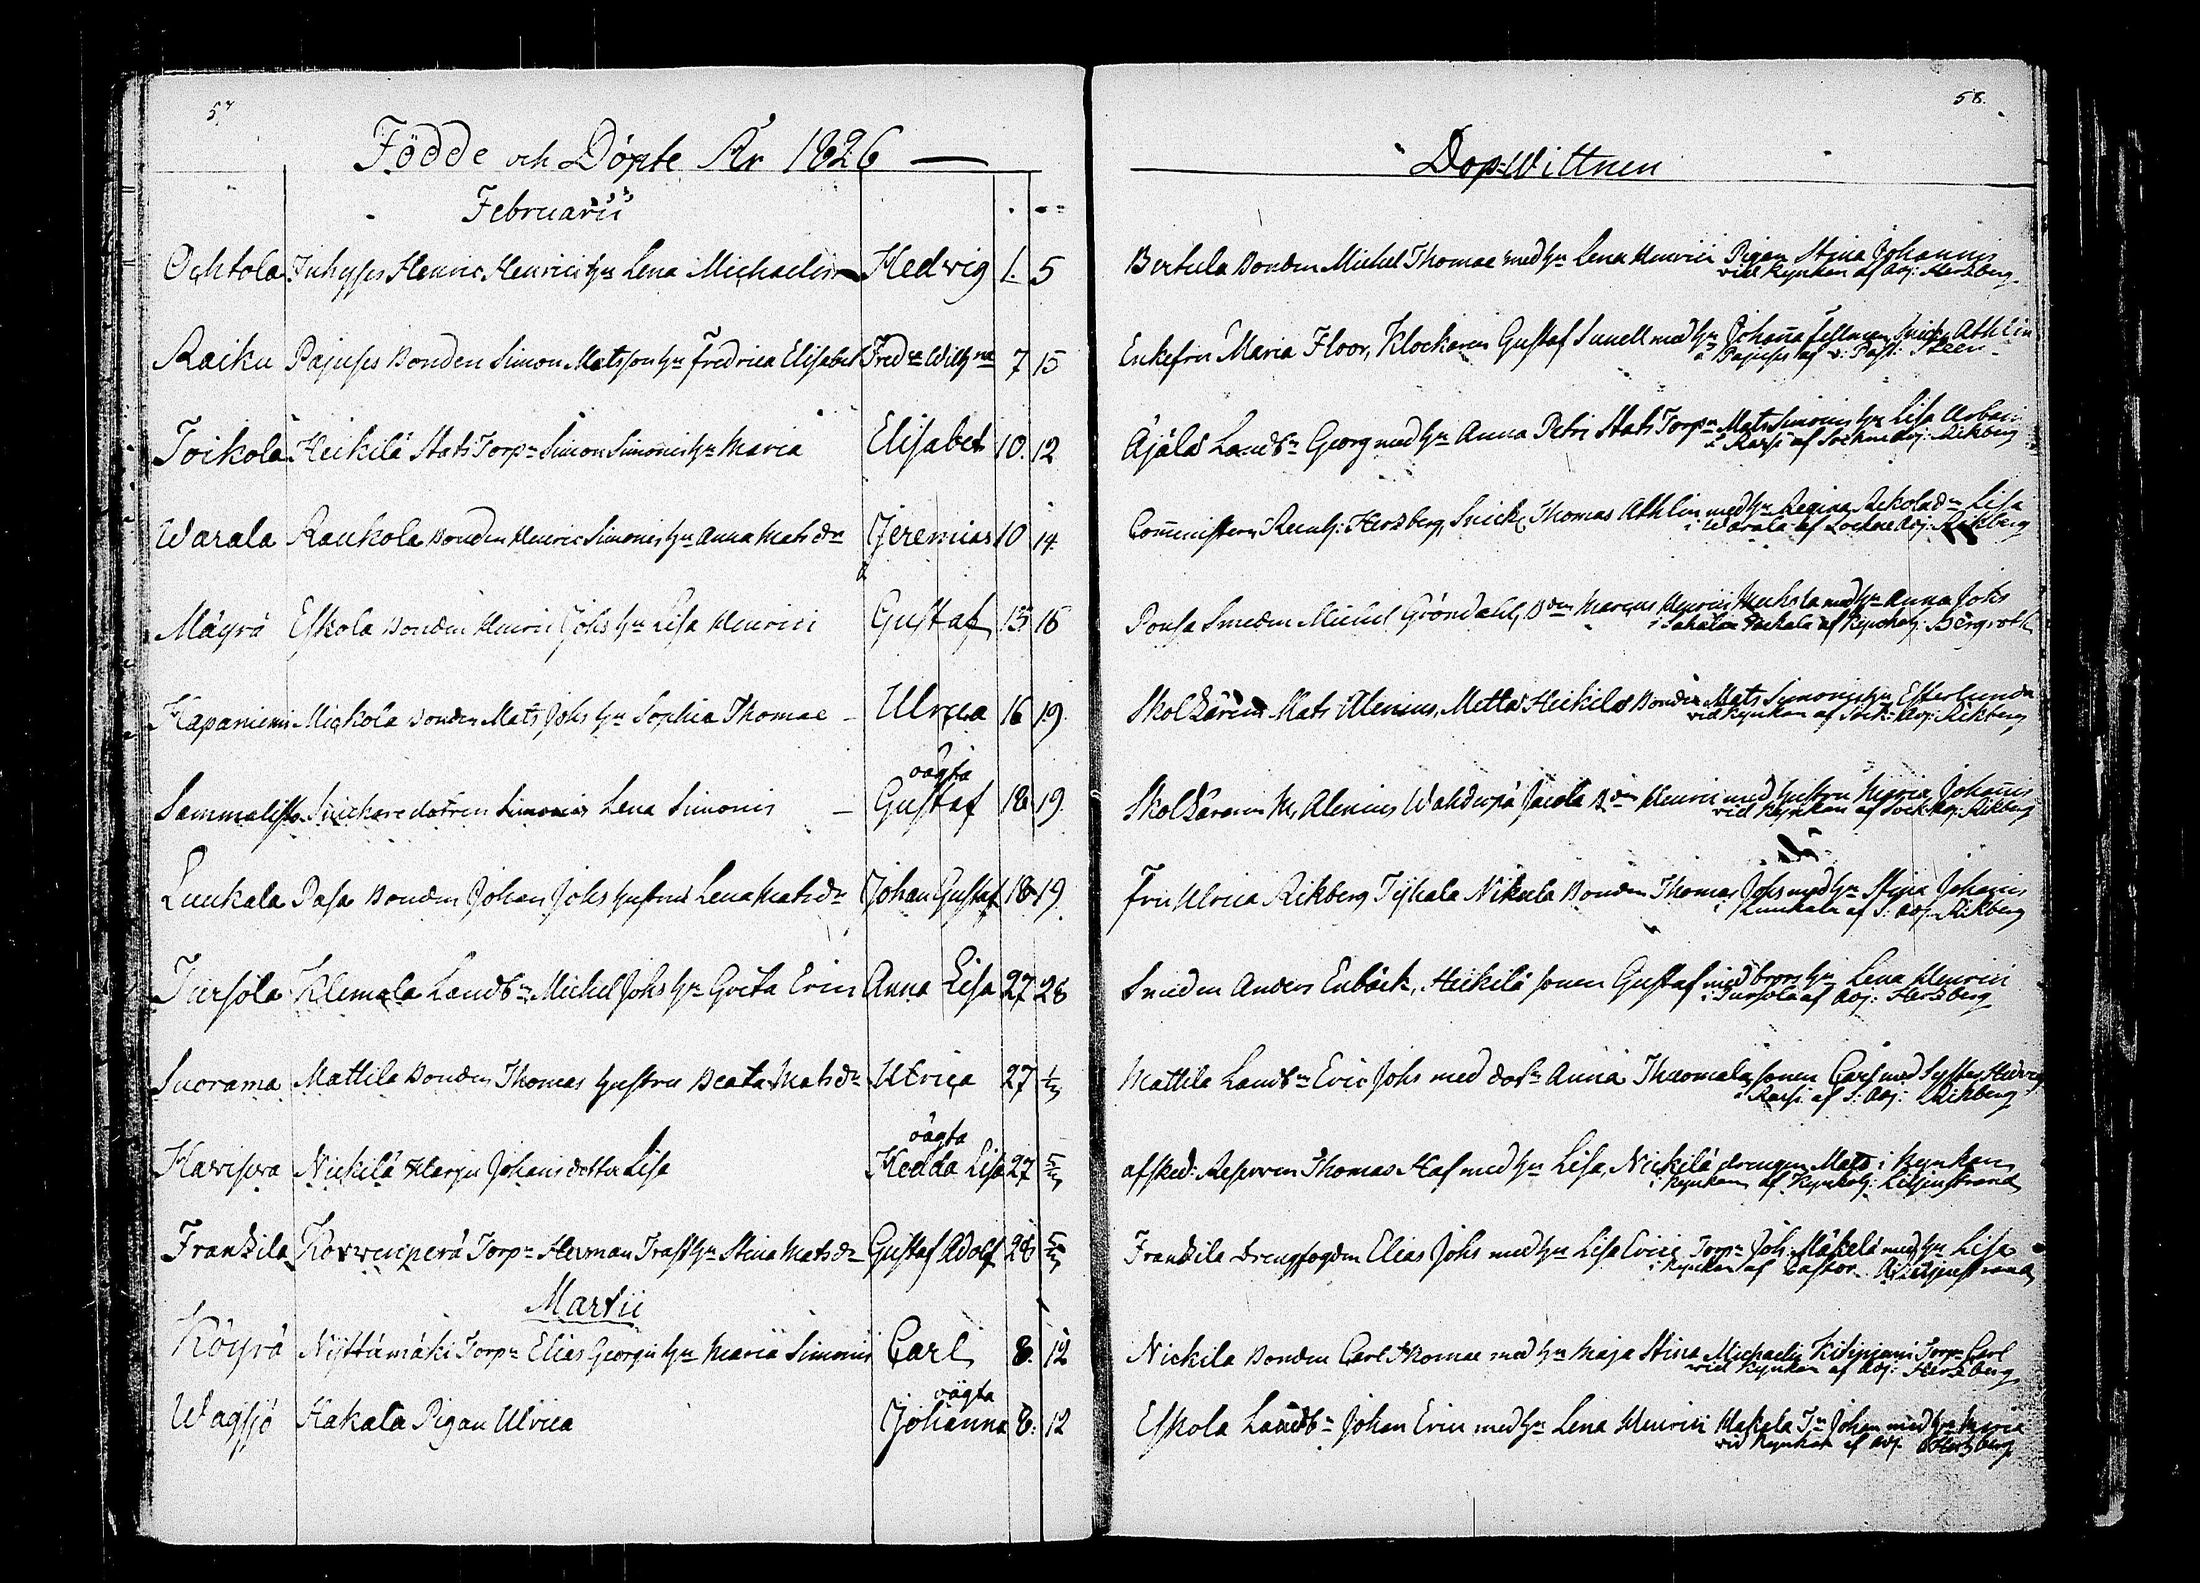 57
Födde och Döpte År 1826
Februarii
Ochtola Juhyses Henric Henrici hu Lena Michaelis Hedvig 1. 5
Raiku Pajuses Bonden Simon Matsson hu Fredrica Elisabet Fredca Wilhna 7 15
Toikola Heikilä Stats Torpn Simon Simonis hu Maria Elisabet 10. 12
Warala Raukola Bonden Henric Simonis hu Anna Matsdr Jeremias 10 14.
Mäyrä Eskola Bonden Henric Johs hu Lisa Henrici Gustaf 13 16
Hapaniemi Mickola Bonden Mats Johs hu Sophia Thomae Ulrica 16 19.
oägta
Sammalisto Snickaredottren Lena Simonis Gustaf 18 19.
Luukala Pasa Bonden Johan Johs hustru Lena Matsdr Johan Gustaf 18 19.
Tursola Klemola Landbn Michel Johs hu Greta Erici Anna Lisa 27 28
Suorama Mattila Bonden Thomas hustru Beata Matsdr Ulrica 27 1/3
oägta
Havisova Nickilä Harju Johans dotter Lisa Hedda Lisa 27 5/3
Frantsila Korvenperä Torpn Herman Trast hu Stina Matsdr Gustaf Adolf 28 5/3
Martii
Köyrä Nyttämäki Torpn Elias Georgii hu Maria Simonis Carl 8. 12
oägta
Wagsjö Hakala Pigan Ulrica Johanna 8. 12
58.
Dop-Wittnen
Bertula Bonden Michel Thomae med hu Lena Henrici Pigan Stina Johannis
vid Kyrkan af Adj: Hertzberg
Enkefru Maria Floor, Klockaren Gustaf Sunell med hu Johanna Fellman Snick Athlin
i Pajuses af v: Past: Steen
Äjälä Landbn Georg med hu Anna Petri Stats Torpn Mats Simonis hu Lisa
i af Sockne Adj: Rikberg
Comministern Hertzberg, Snick Thomas Athlin med hu Regina Rekola dn Lisa
i Warala af Sockne Adj: Rikberg
Pousa Smeden Michel Gröndahl, Bdn Marcus Henrici med hu Anna Johs
i af Kyrkoh: Bergroth
Skolläraren Mats Alenius, Metta Heikilä Bonden Mats Simonis hu
vid Kyrkan af Sock: Adj: Rikberg
Skolläraren M. Alenius Jacola Bdn Henric med hustru Maria Johannis
vid Kyrkan af Sock: Adj: Rikberg
Fru Ulrica Rikberg Tyhala Nikula Bonden Thomas Johs med hu Stina Johannis
i Luukala af S: Adj: Rikberg
Smeden Anders Enbäck, Heikilä sonen Gustaf med brors hu Lena Henrici
i Tursola af Adj: Hertzberg
Mattila Landbn Eric Johs med dotn Anna Thaomala sonen Carl med Syster Hedvig
i af S: Adj: Rikberg
afsked: Reserven Thomas Haf med hu Lisa, Nickilä drengen Mats i Kyrkan
i Kyrkan af Kyrkoh: Liljenstrand
Frantsila Drengfogden Elias Johs med hu Lisa Erici Torpn Joh: Mäkelä med hu Lisa
i Kyrkan af Pastor Liljenstrand
Nickila Bonden Carl Thomae med hu Maja Stina Michaelis Torpn Carl
vid Kyrkan af Adj: Hertzberg
Eskola Landbn Johan Erici med hu Lena Henrici Hakala Tn Johan med hu Maria
vid Kyrkan af Adj: Hertzberg